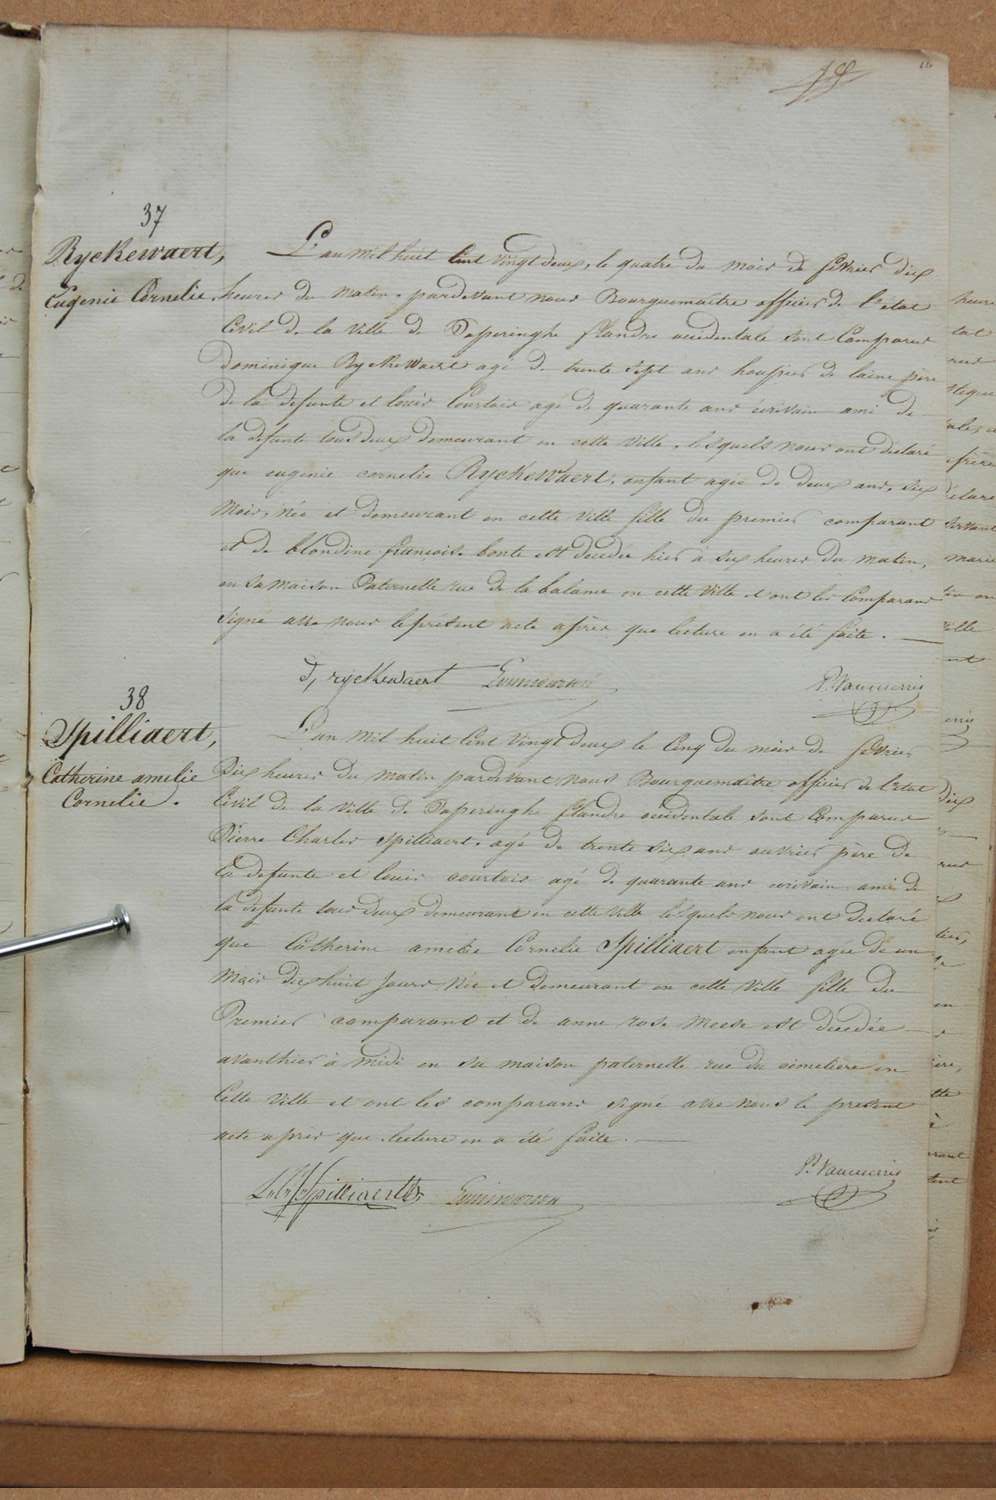 16
37
Ryckewaert,
Eugenie Cornelie.
L'an mil huit Cent vingt deux, le quatre du mois de fevrier dix
heures du Matin, pardevant nous Bourguemaitre officier de l'etat
Civil de la Ville de Poperinghe flandre occidentale sont Comparus
Dominique Ryckewaert agé de trente Sept ans houpier de laine père
de la defunte et louis Courtois agé de quarante ans écrivain ami de
la defunte tous deux demeurant en cette Ville, lesquels nous ont declaré
que eugenie cornelie Ryckewaert, enfant agée de deux ans, six
Mois, née et demeurant en cette Ville fille du premier comparant
et de blondine francoise bonte est decedée hier à six heures du matin,
en sa maison Paternelle rue de la balame en cette Ville et ont les Comparans
Signé avec nous le present acte après que lecture en a été faite.
D, ryckewaert P. Vanmerris
38
Spilliaert,
Catherine amelie
Cornelie.
L'an Mil huit Cent Vingt deux le Cinq du mois de fevrier
Dix heures du matin pardevant nous Bourguemaitre officier de l'etat
Civil de la Ville de Poperinghe flandre occidentale sont Comparus
Pierre Charles Spilliaert, agé de trente Six ans ouvrier père de
la defunte et louis courtois agé de quarante ans ecrivain ami de
la defunte tous deux demeurant en cette Ville lesquels nous ont declaré
que Catherine amelie Cornelie Spilliaert enfant agée de un
Mois dix huit Jours Née et demeurant en cette Ville fille du
Premier comparant et de anne rose Meese est decedée
avanthier à midi en sa maison paternelle rue du cimetiere en
Cette Ville et ont les comparans signé avec nous le present
acte après que lecture en a été faite.
Spilliaert P. Vanmerris